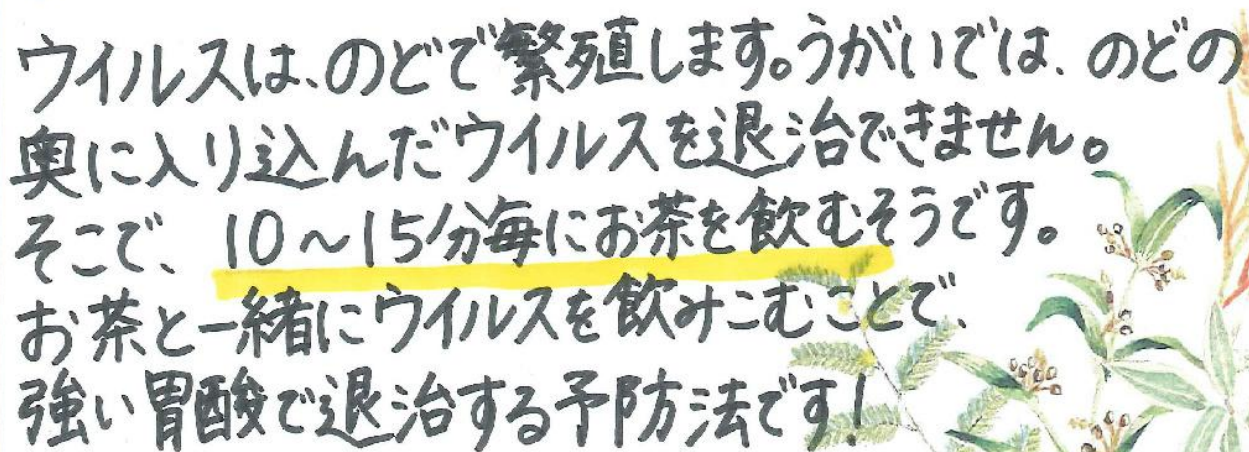 ウイルスは、のどで繁殖します。うがいでは、のどの
奥に入り込んだウイルスを退治できません。
そこで、10〜15分毎にお茶を飲むそうです。
お茶と一緒にウイルスを飲みこむことで、
強い胃酸で退治する予防法です!